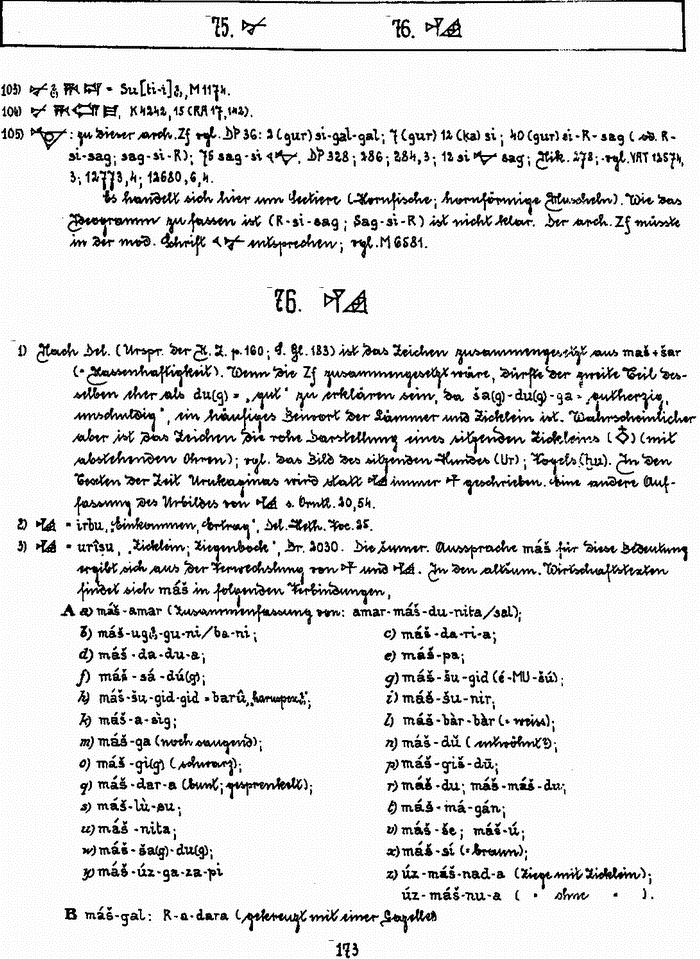 75. 76.
103) = Su[ti-i], M 1174.
104) K 4242, 15 (RA 17, 142).
105) : zu dieser arch. Zf vgl. DP 36: 2 (gur) si-gal-gal; 7 (gur) 12 (ka) si; 40 (gur) si-R-sag ( od. R-
si-sag; sag-si-R); 75 sag-si , DP 328; 286; 284, 3; 12 si sag; Nik. 278; vgl. VAT 12574,
3; 12773, 4; 12680, 6, 4.
Es handelt sich hier um Seetiere (Hornfische; hornförmige Muscheln). Wie das
Ideogramm zu fassen ist (R-si-sag; Sag-si-R) ist nicht klar. Der arch. Zf müsste
in der mod. Schrift entsprechen; vgl. M 6581.
76.
1) Nach Del. (Urspr. der K. Z. p. 160; S. Gl. 183) ist das Zeichen zusammengesetzt aus maš + šar
(= Massenhaftigkeit). Wenn die Zf zusammengesetzt wäre, dürfte der zweite Teil des-
selben eher als du(g) = „gut“ zu erklären sein, da ša(g)-du(g)-ga = gutherzig,
unschuldig“, ein häufiges Beiwort der Lämmer und Zicklein ist. Wahrscheinlicher
aber ist das Zeichen die rohe Darstellung eines sitzenden Zickleins ( ) (mit
abstehenden Ohren); vgl. das Bild des sitzenden Hundes (Ur); Vogels (hu). In den
Texten der Zeit Urukaginas wird statt immer geschrieben. Eine andere Auf-
fassung des Urbildes von s. Ornt. 20, 54.
2) = irbu, „Einkommen, Ertrag“, Del. Heth. Voc. 25.
3) = urîsu, „Zicklein; Ziegenbock“, Br. 2030. Die šumer. Aussprache máš für diese Bedeutung
ergibt sich aus der Verwechslung von und . In den altšum. Wirtschaftstexten
findet sich máš in folgenden Verbindungen,
A a) máš-amar (Zusammenfassung von: amar-máš-du-nita/sal);
b) máš- -gu-ni/ba-ni; c) máš-da-ri-a;
d) máš-da-du-a; e) máš-pa;
f) máš-sá-dú(g); g) máš-šu-gid (é-MU-šú);
h) máš-šu-gid-gid = barû, „haruspex“; i) máš-šu-nir,
k) máš-a-sìg; l) máš-bàr-bàr (= weiss);
m) máš-ga (noch saugend); n) máš-dŭ ( entwöhnt?);
o) máš-gi(g) ( schwarz); p) máš-giš-dū;
q) máš-dar-a (bunt; gesprenkelt); r) máš-du; máš-máš-du;
s) máš-lù-su; t) máš-má-gán;
u) máš-nita; v) máš-še; máš-ú;
w) máš-ša(g)-du(g); x) máš-sí (= braun);
y) máš-úz-ga-za-pi z) úz-máš-nad-a (Ziege mit Zicklein);
úz-máš-nu-a ( " ohne " ).
B máš-gal: R-a-dara (gekreuzt mit einer Gazelle)
173